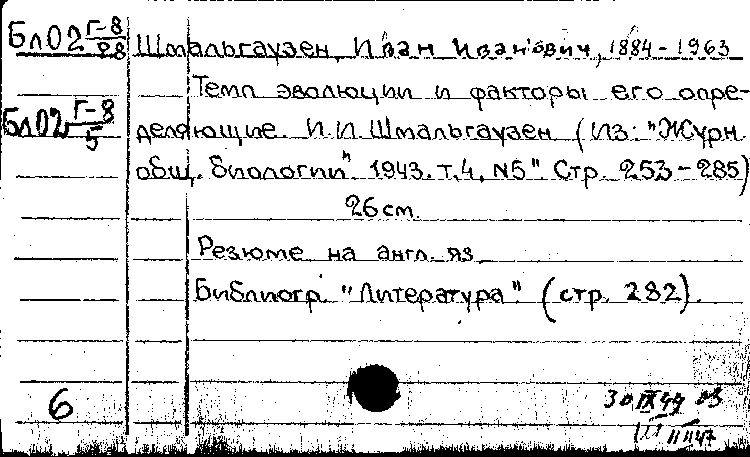 Бл02 Г-8/28 Шмальгаузен, Иван Иванович, 1884-1963
Темп эволюции и факторы его опре-
Бл02 Г-8/5 деляющие. И.И. Шмальгаузен (Из: "Журн.
общ. биологии" 1943. т.4, N5" Стр. 253-285)
26 см.
Резюме на англ. яз.
Библиогр. "Литература" (стр. 282).
6
30 IX 44